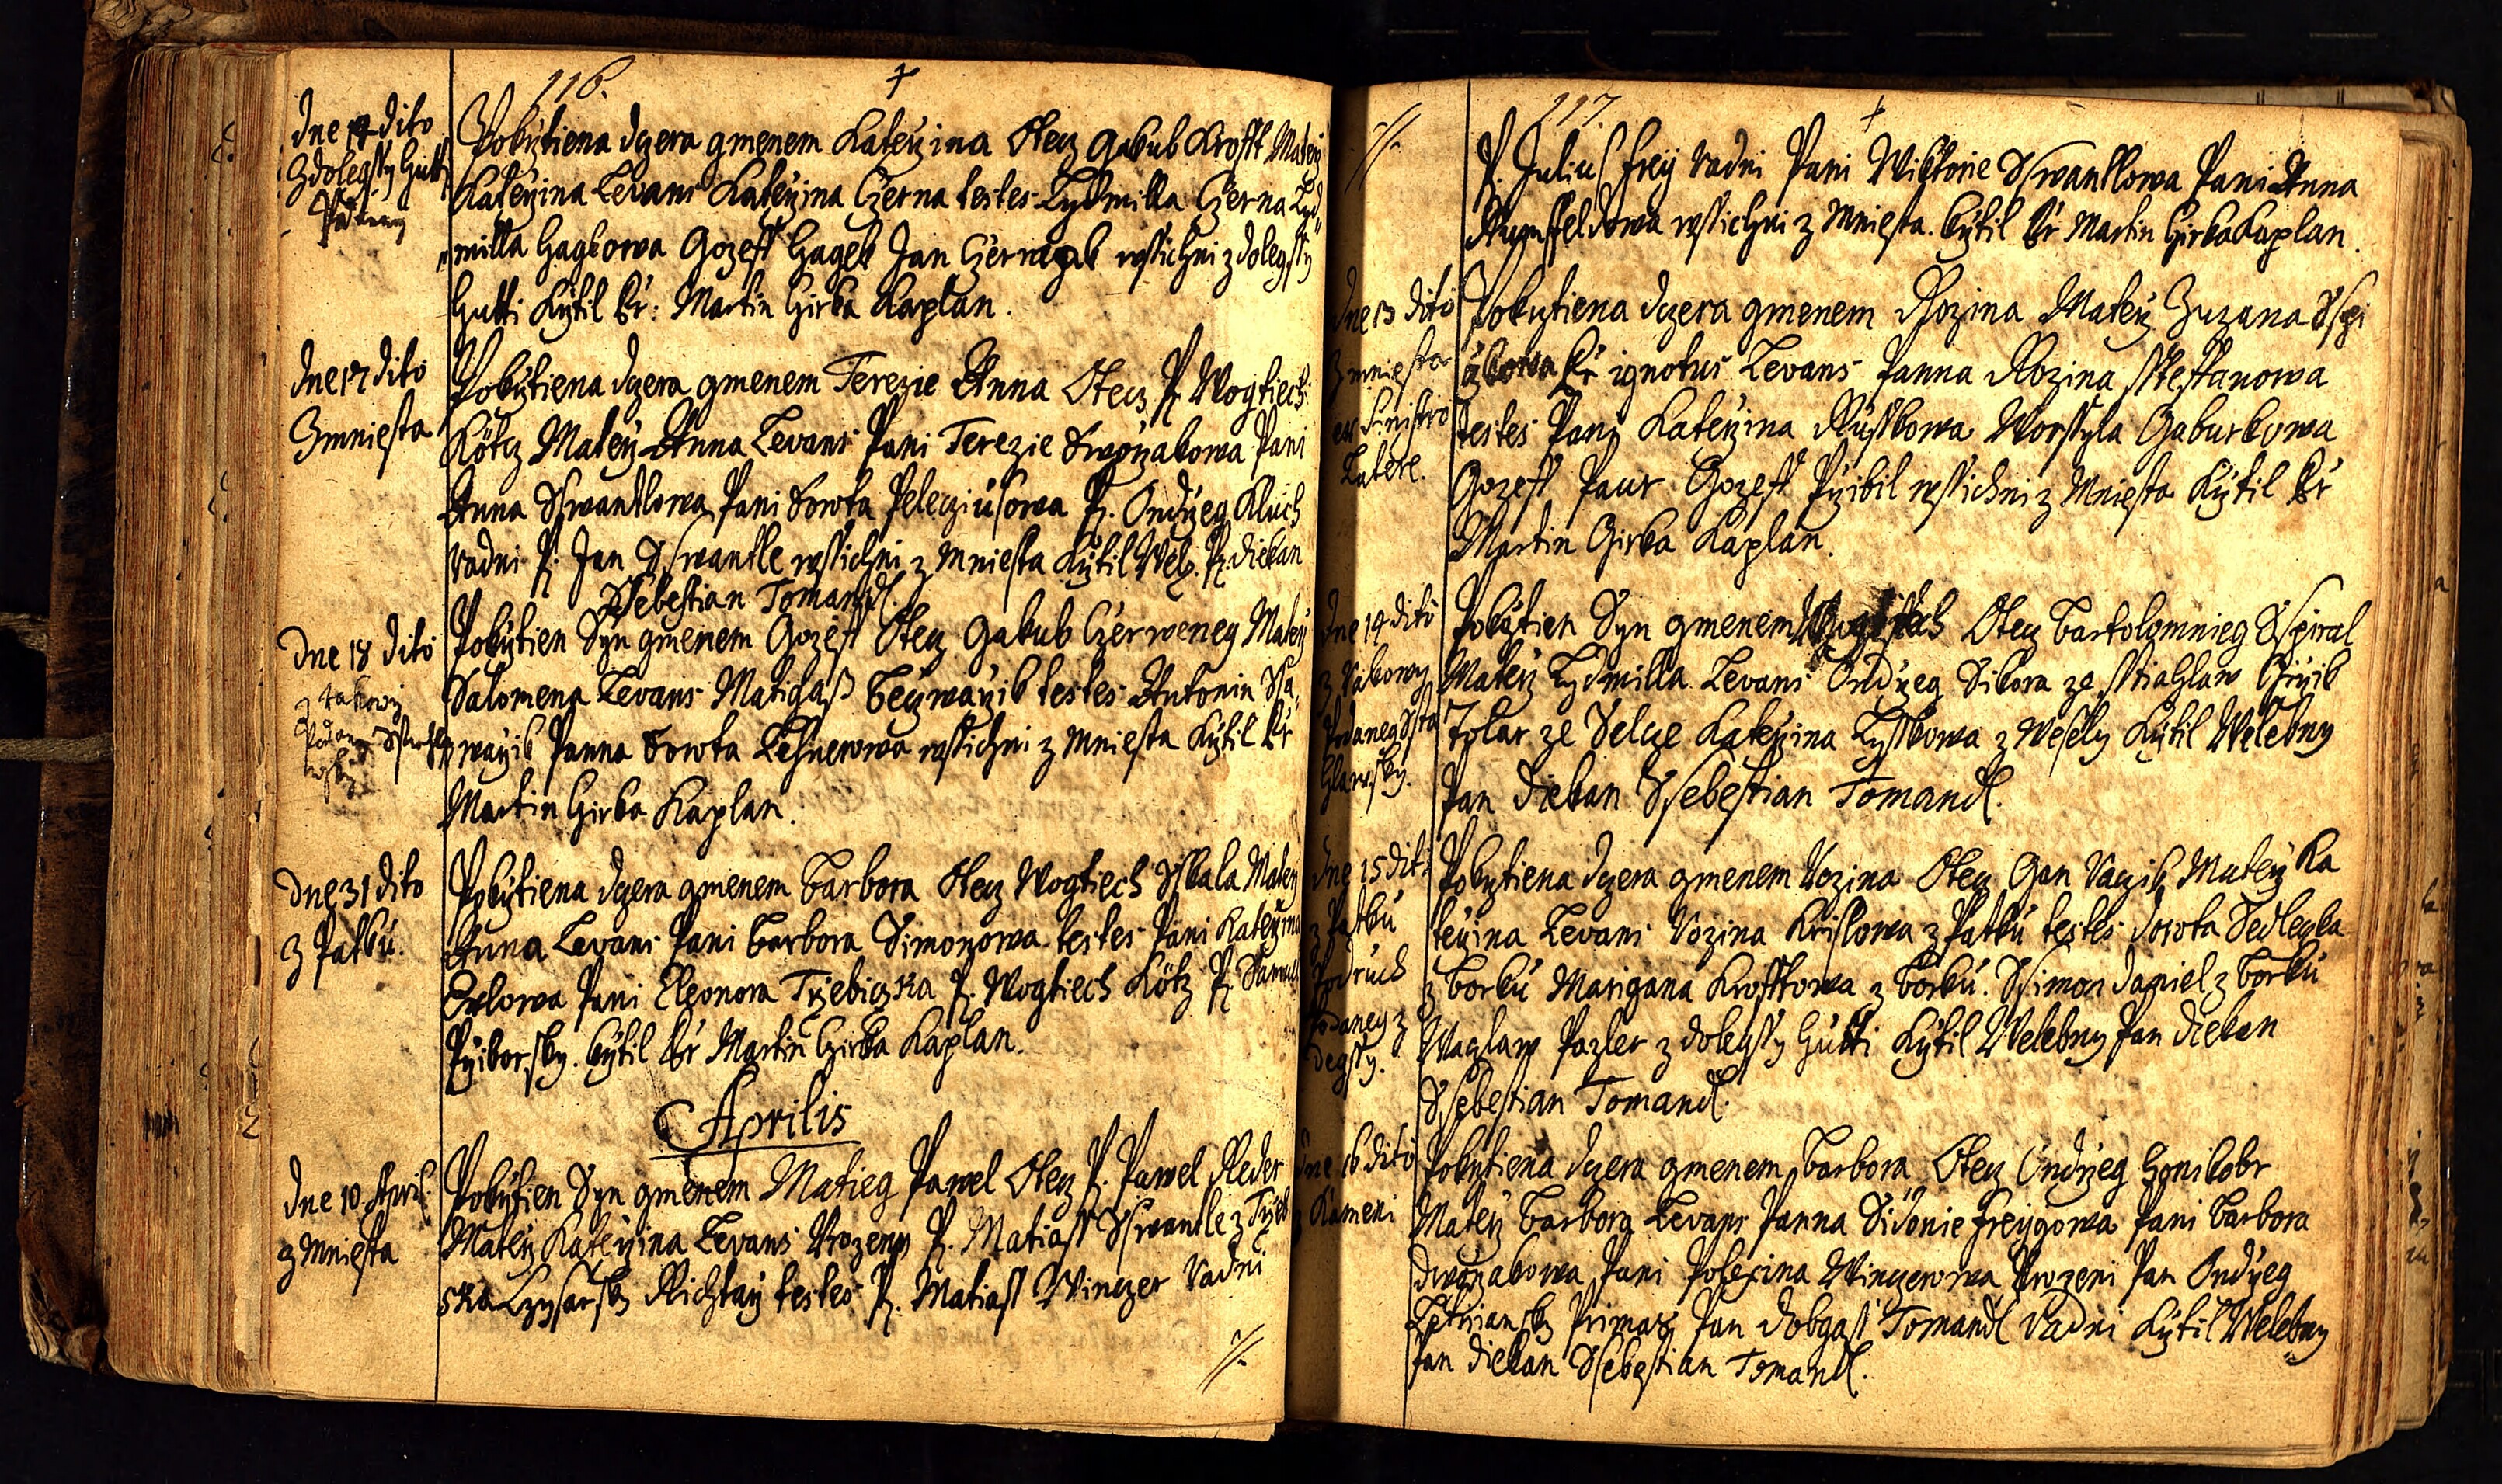 116.
dne 14 dito
Zdolegssy Hutti
Pokrztiena dczera gmenem Katerzina Otecz Gakub Krofft Materz
Katerzina Levans Katerzina Czerna testes Lydmilla Czerna Lyd-
milla Hagkowa Gozeff Hagek Jan wssichni zdolegssy
Hutti Krztil Kr: Martin Girka Kaplan.
dne 17 dito
Zmniesta
Pokrztiena dczera gmenem Terezie Anna Otecz P. Wogtiech
Kötz Materz Anna Levans Pani Terezie Dworzakowa Pani
Anna Sswantlowa Pani Dorota P. Ondrzeg Kluch
radni P. Jan Sswantle wssichni z Mniesta Krztil Wel. P. diekan
Ssebestian Tomandl.
dne 18 dito
Pokrztien Syn gmenem Gozeff Otecz Gakub Czerweney Materz
Salomena Levans Matigass testes Antonin
Panna Dorota wssichni z Mniesta Krztil Kr
Martin Girka Kaplan.
dne 31 dito
z Patku.
Pokrztiena dczera gmenem Barbora Otecz Wogtiech Sskala Materz
Anna Levans Pani Barbora Simonowa testes Pani Katerzina
Pani Eleonora Trzebiczka P. Wogtiech Kötz P. Samuel
Prziborsky. Krztil Kr Martin Girka Kaplan.
Aprilis
dne 10 April:
z Mniesta
Pokrztien Syn gmenem Matieg Pawel Otecz P. Pawel Reder
Materz Katerzina Levans Urozeny P. Matiass Sswantle z Trzeb
ska Czysarsky Richtarz testes P. Matiass Winczer radni
//.
117.
//.
P. Julius Frey radni Pani Wiktorie Sswantlowa Pani Anna
wssichni z Mniesta. Krztil Kr Martin Girka Kaplan.
dne 13 dito
Zmniesta
ex sinistro
Latere.
Pokrztiena dczera gmenem Rozina Materz Zuzana
Pr ignotus Levans Panna Rozina Sstefanowa
testes Pani Katerzina Russkowa Worssyla Gaburkowa
Gozeff Paur Gozeff Przibil wssichni z Mniesta Krztil Kr
Martin Girka Kaplan.
dne 14 dito
Pokrztien Syn gmenem Otecz Bartolomnieg Sspiral
Materz Lydmilla Levans Ondrzeg Sikora ze Sstiahlaw
Tolar ze Selcze Katerzina Lysskowa z Wesely Krztil Welebny
Pan diekan Ssebestian Tomandl.
dne 15 dito
z Patku
Pokrztiena dczera gmenem Rozina Otecz Gan Materz Ka
terzina Levans Rozina Krislowa z Patku testes Dorota Sedleczka
z Borku Marigana Krofftowa z Borku. Ssimon Daniel z Borku
Waczlaw Pazler z dolegssy Hutti Krztil Welebny Pan diekan
Ssebestian Tomandl.
dne 16 dito
z Kameni
Pokrztiena dczera gmenem Barbora Otecz Ondrzeg
Materz Barbora Levans Panna Sidonie Freygowa Pani Barbora
Dworzakowa Pani Polexina Winczerowa Urozeni Pan Ondrzeg
Primas Pan Tobgass Tomandl radni Krztil Welebny
Pan diekan Ssebestian Tomandl.